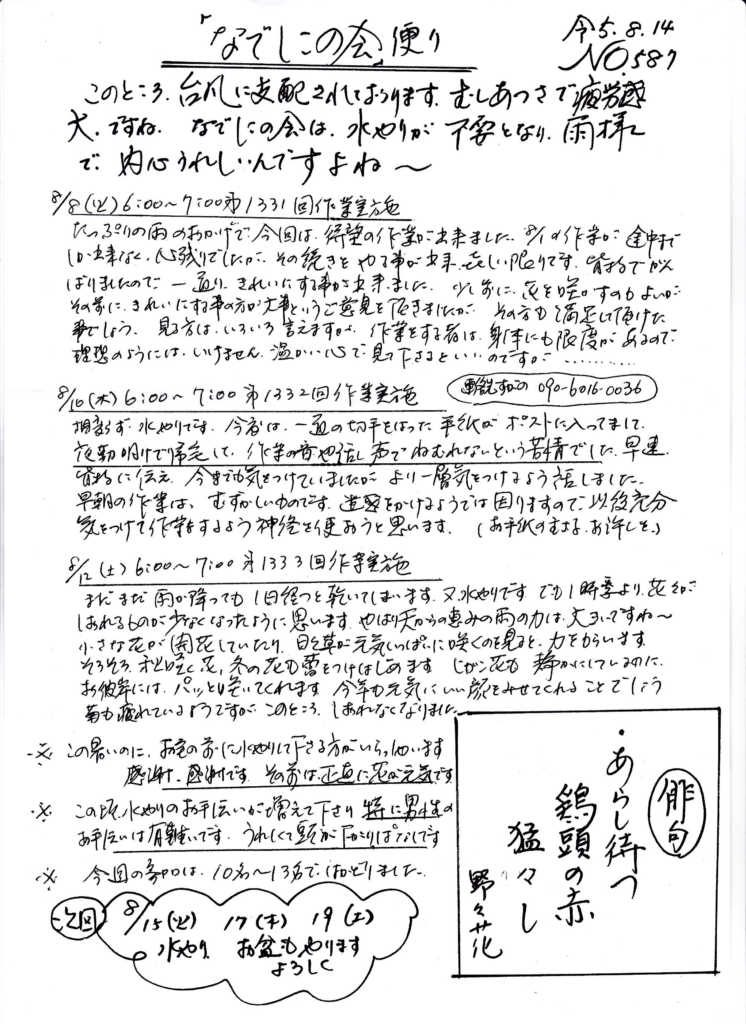 「なでしこの会」便り
令5.8.14
NO.587
このところ、台風に支配されております。むしあつさで疲労感
大、ですね。なでしこの会は、水やりが不要となり、雨様々
で、内心うれしいんですよね〜
8/8(火)6:00〜7:00第1331回作業実施
たっぷりの雨のおかげで、今回は、待望の作業が出来ました。8/1の作業が途中まで
しか出来なく、心残りでしたが、その続きをやる事が出来、嬉しい限りです。皆様でがん
ばりましたので、一通り、きれいにする事が出来ました。少し前に、花を咲かすのもよいが
その前に、きれいにする事の方が大事というご意見を頂きましたが、その方も満足して頂けた
事でしょう。見る方は、いろいろ言えますが、作業をする者は、身体にも限度があるので
理想のようには、いけません。温かい心で見て下さるといいのですが…………
8/10(木)6:00〜7:00第1332回作業実施
090-6016-0036
相変らず、水やりです。今春は、一通の切手をはった手紙がポストに入ってまして、
夜勤明けで帰宅して、作業の音や話し声でねむれないという苦情でした。早速、
皆様に伝え、今までも気をつけていましたが、より一層気をつけるよう話しました。
早朝の作業は、むずかしいものです。迷惑をかけるようでは困りますので、以後充分
気をつけて作業をするよう神経を使おうと思います。(お手紙のむすお許しを。)
8/12(土)6:00〜7:00第1333回作業実施
まだまだ雨が降っても1日経つと乾いてしまいます。又、水やりです。でも1時季より、花々が
しおれるものが少なくなったように思います。やはり天からの恵みの雨の力は、大きいですね〜
小さな花が開花していたり、日々草が元気いっぱいに咲くのを見ると、力をもらいます。
そろそろ、秋に咲く花、冬の花も蕾をつけはじめます。ひがん花も静かにしているのに、
お彼岸には、パッと咲いてくれます。今年も元気にいい顔をみせてくれることでしょう
菊も疲れているようですが、このところ、しおれなくなりました。
※ この暑いのに、お宅の前に水やりして下さる方がいらっしゃいます
感謝、感謝です。その前は、正直に花が元気です
※ この頃、水やりのお手伝いが増えて下さり、特に男性の
お手伝いは有難いです。うれしくて頭が下がりっぱなしです
※ 今回の参加は、10名〜13名で、はかどりました。
次回
8/15(火) 17(木) 19(土)
水やり お盆もやります
よろしく
俳句
・あらし待つ
鶏頭の赤
猛々し
野々花